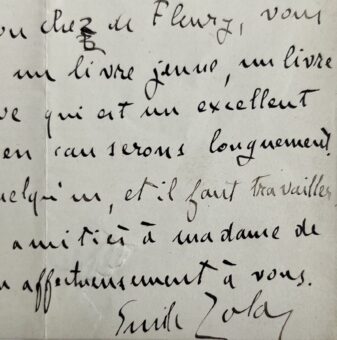 on chez de Fleury, vous
un livre jeune, un livre
ve qui est un excellent
en causerons longuement.
uelqu'un, et il faut travailler.
amitiés à madame de
n affectueusement à vous.
Emile Zola